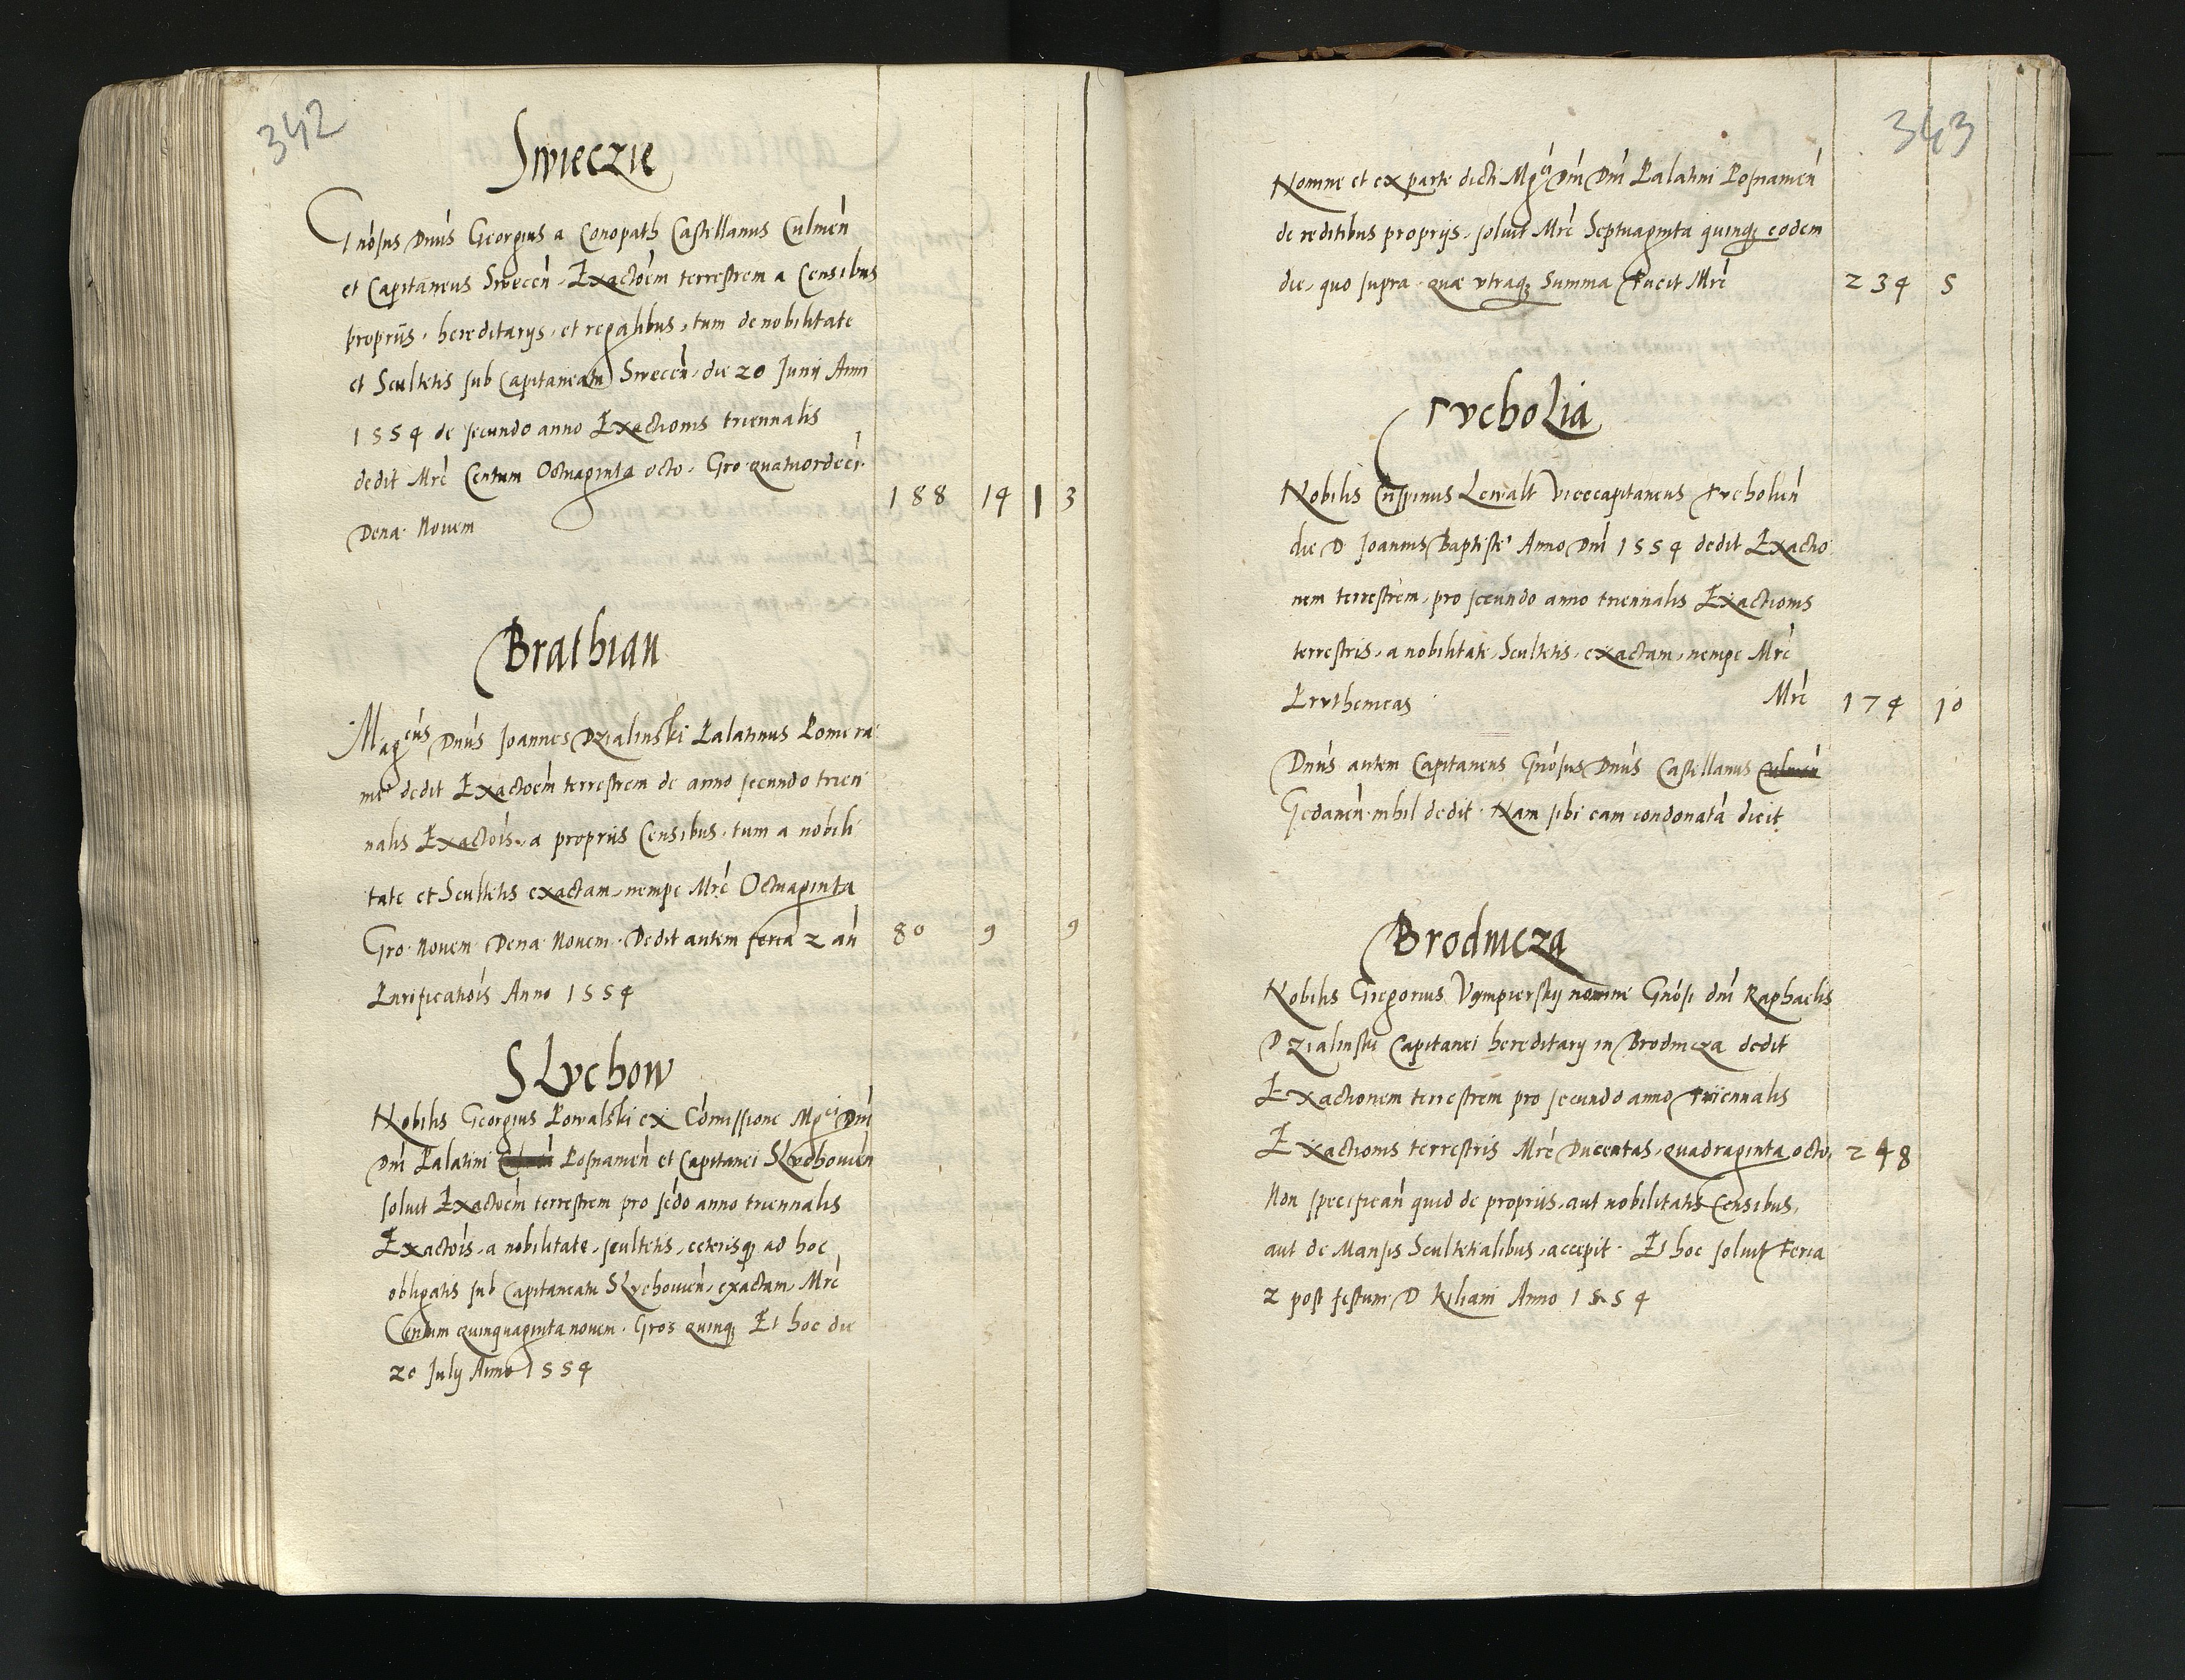 342
Swieczie
Gnosus Dnus Georgius a Conopath Castellanus Culmen
et Capitaneus Swecen Exactoem terrestrem a Censibus
propriis, hereditarijs, et regalibus, tum de nobilitate
et Scultetis sub Capitaneatu Swecen, die 20 Junij Anni
1554 de secundo anno Exactionis triennalis
dedit Mrc Centum Octuaginta octo. Gro quatuordeci
Dena Novem
188 14 1 3
Brathian
Magcus Dnus Joannes Dzialinski Palatinus Pomera
nie dedit Exactoem terrestrem de anno secundo trien
nalis Exactois, a propriis Censibus, tum a nobili
tate et Scultetis exactam, nempe Mrc Octuaginta
Gro Novem Dena Novem. Dedit autem feria 2 an 80 9 9
Purificatiois Anno 1554
Slvchow
Nobilis Georgius Kowalski ex Comissione Mgci Dni
Dni Palatini Posnamen et Capitanei Slvchouien
soluit Exactoem terrestrem pro sedo anno triennalis
Exactois, a nobilitate, scultetis, ceterisq ad hoc
obligatis sub Capitaneatu Slvchouien, exactam, Mrc
Centum quinquaginta novem. Gros quinq Et hoc die
20 July Anno 1554
343
Nomine et ex parte dicti Mgci Dni Dni Palatini Posnamen
de reditibus proprijs, soluit Mrc Septuaginta quinq eodem
die, quo supra. quae vtraq Summa facit Mrc 234 5
Tvcholia
Nobilis Crispinus Lewalt Vicecapitaneus Tvcholien
die D Joannis Baptiste Anno Dni 1554 dedit Exactio
nem terrestrem, pro secundo anno triennalis Exactionis
terrestris, a nobilitate, Scultetis, exactam, nempe Mrc
Prvthenicas Mrc 174 10
Dnus autem Capitaneus Gnosus Dnus Castellanus Culmen
Gedanen nihil dedit. Nam sibi eam condonata dicit
Brodnicza
Nobilis Gregorius Vympierskij nomine Gnosi dni Raphaelis
Dzialinski Capitanei hereditarij in Brodnicza dedit
Exactionem terrestrem pro secundo anno triennalis
Exactionis terrestris Mrc Ducentas, quadraginta octo, 248
Non specifican quid de propriis, aut nobilitatis Censibus,
aut de Mansis Scultetialibus, accepit. Et hoc soluit Feria
2 post festum D Kiliani Anno 1554